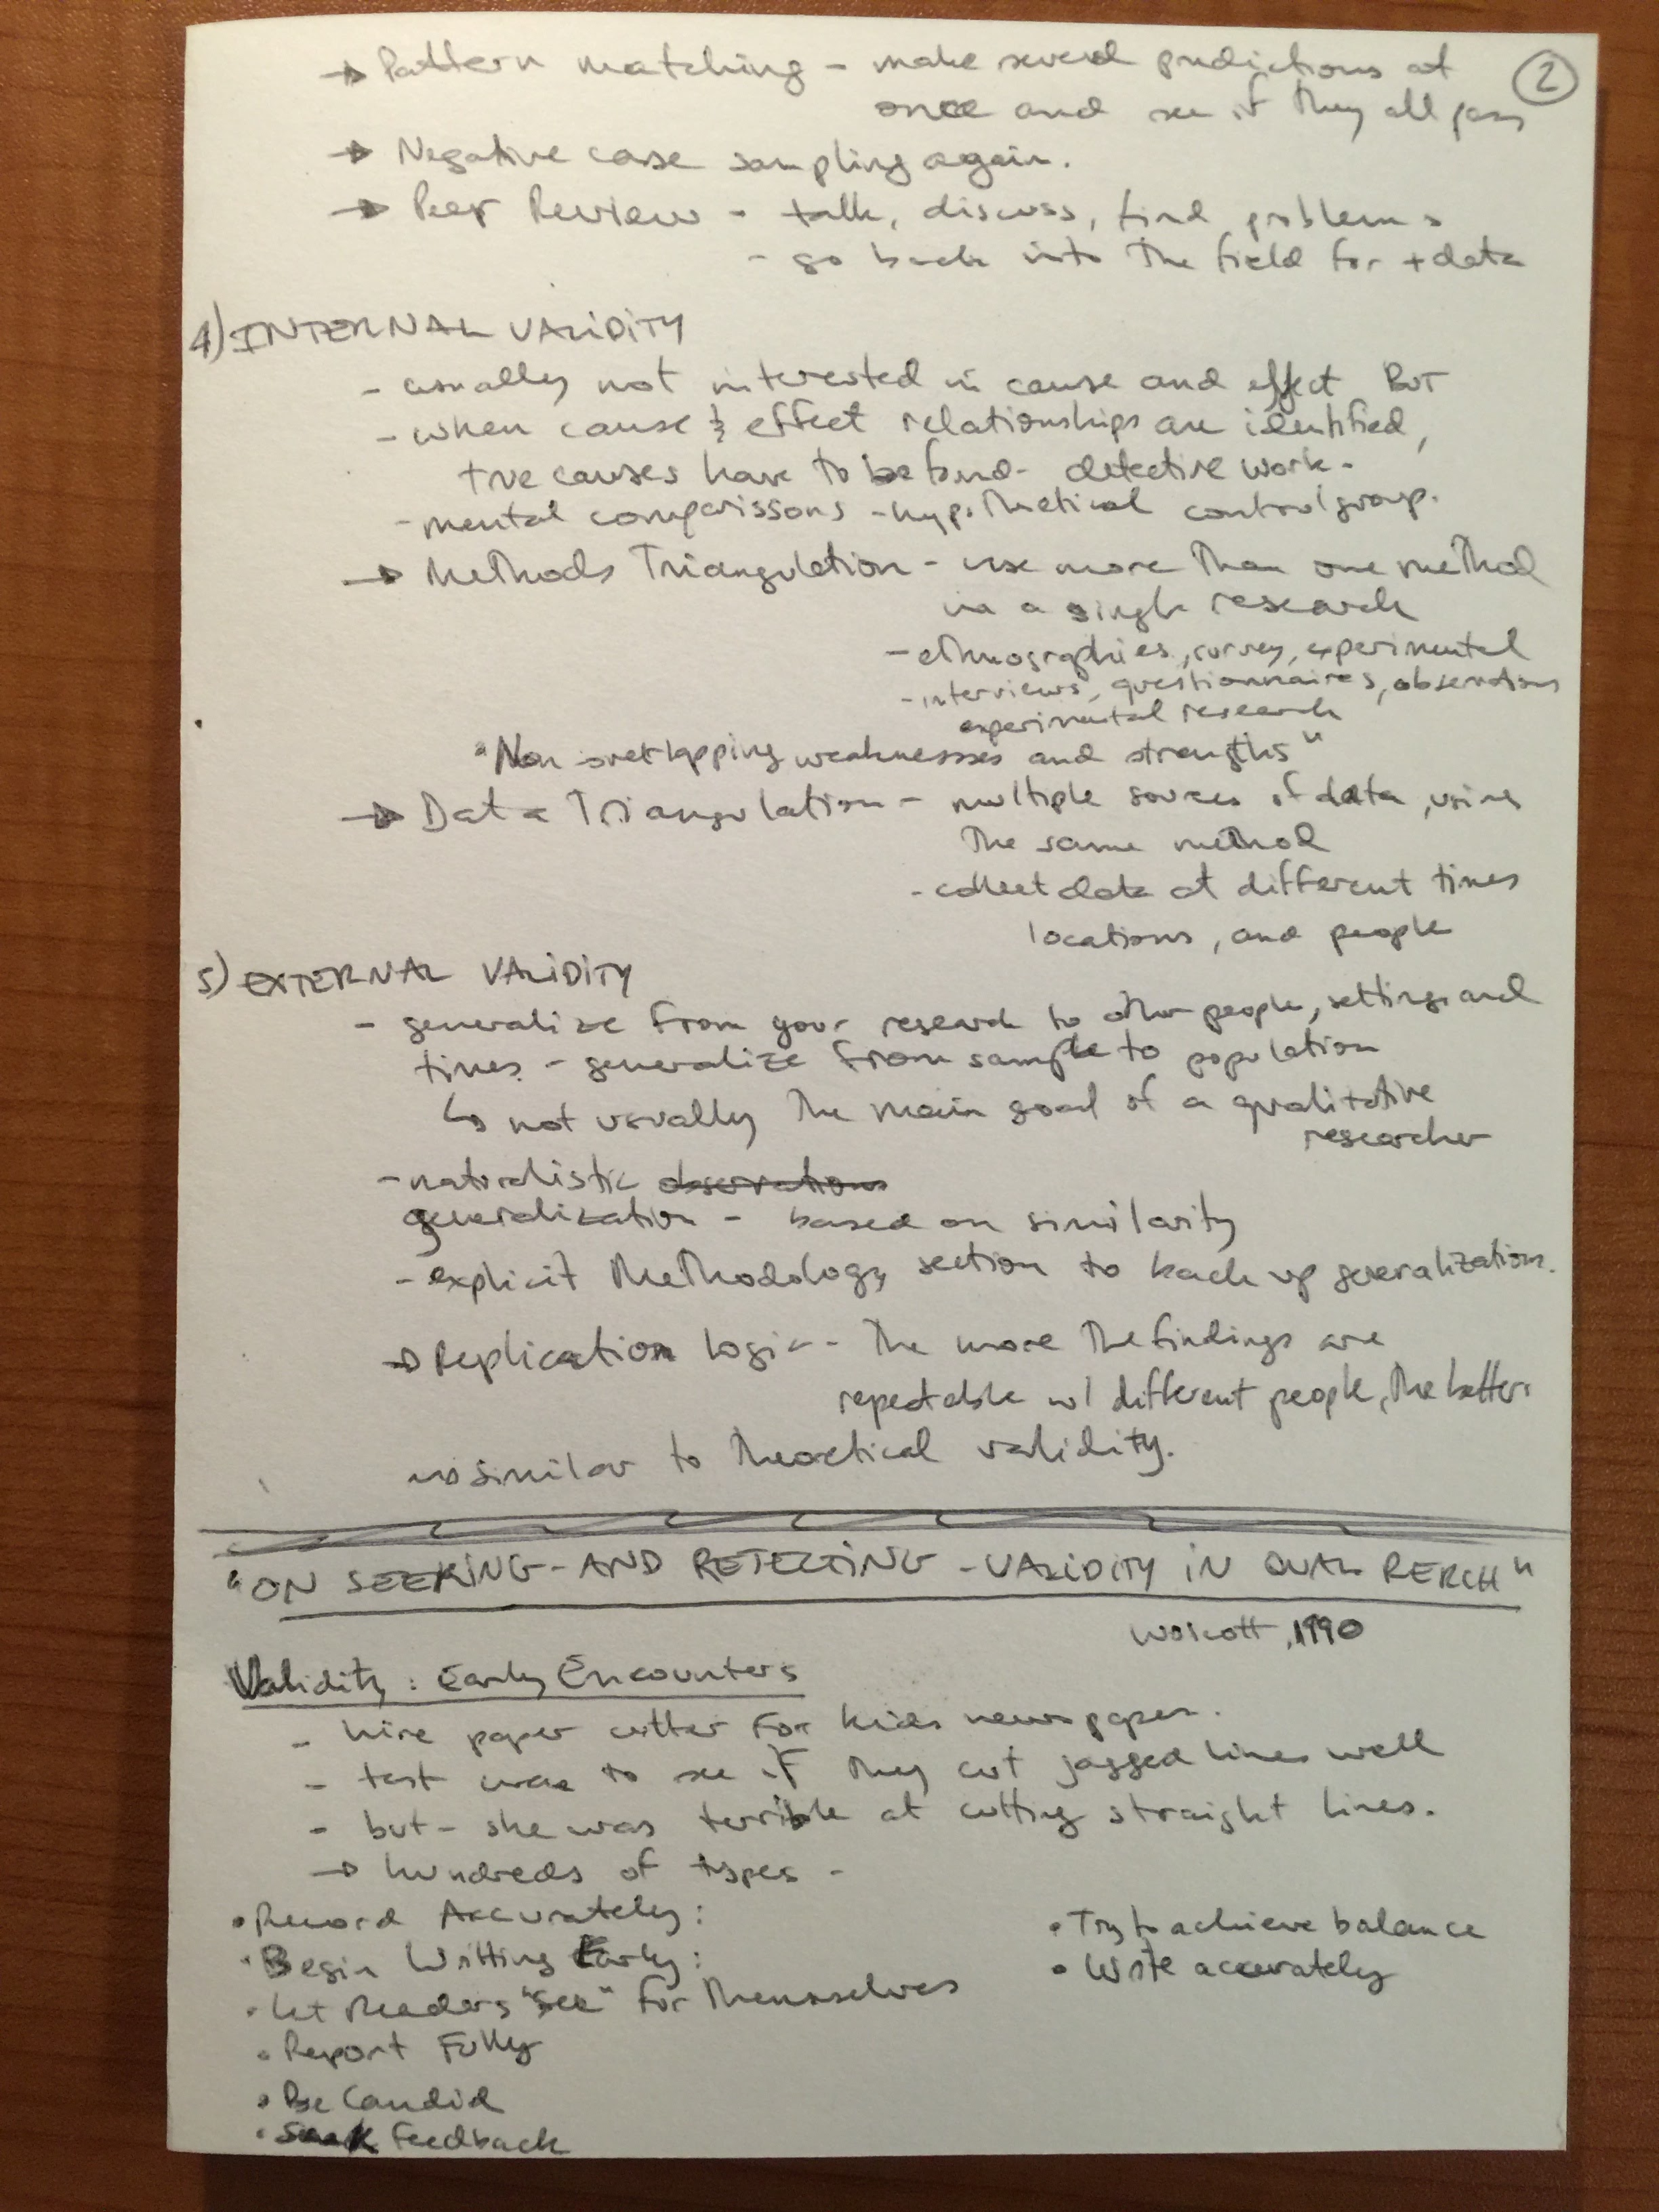 → Pattern matching - make several predictions at
②
once and see if they all pass
→ Negative case sampling again.
→ Peer Review - talk, discuss, find problems
- go back into the field for + data
4) INTERNAL VALIDITY
- usually not interested in cause and effect BUT
- when cause & effect relationships are identified,
true causes have to be found - detective work.
- mental comparissons - hypothetical control group.
→ Methods Triangulation - use more than one method
in a single research
- ethnographies, survey, experimental
- interviews, questionnaires, observations
experimental research
"Non overlapping weaknesses and strengths"
→ Data Triangulation - multiple sources of data, using
the same method
- collect data at different times
locations, and people
5) EXTERNAL VALIDITY
- generalize from your research to other people, settings and
times. - generalize from sample to population
↳ not usually the main goal of a qualitative
researcher
- naturalistic observations
generalization - based on similarity
- explicit Methodology section to back up generalizations.
→ Replication Logic - the more the findings are
repeatable w/ different people, the better.
similar to theoretical validity.
"ON SEEKING - AND REJECTING - VALIDITY IN QUAL RERCH"
Wolcott, 1990
Validity: Early Encounters
- hire paper cutter for kids newspaper.
- test was to see if they cut jagged lines well
- but - she was terrible at cutting straight lines.
→ hundreds of types -
• Record Accurately:
• Begin Writting Early:
• Let Readers "See" for Themselves
• Report Fully
• Be Candid
• Seek Feedback
• Try to achieve balance
• Write accurately